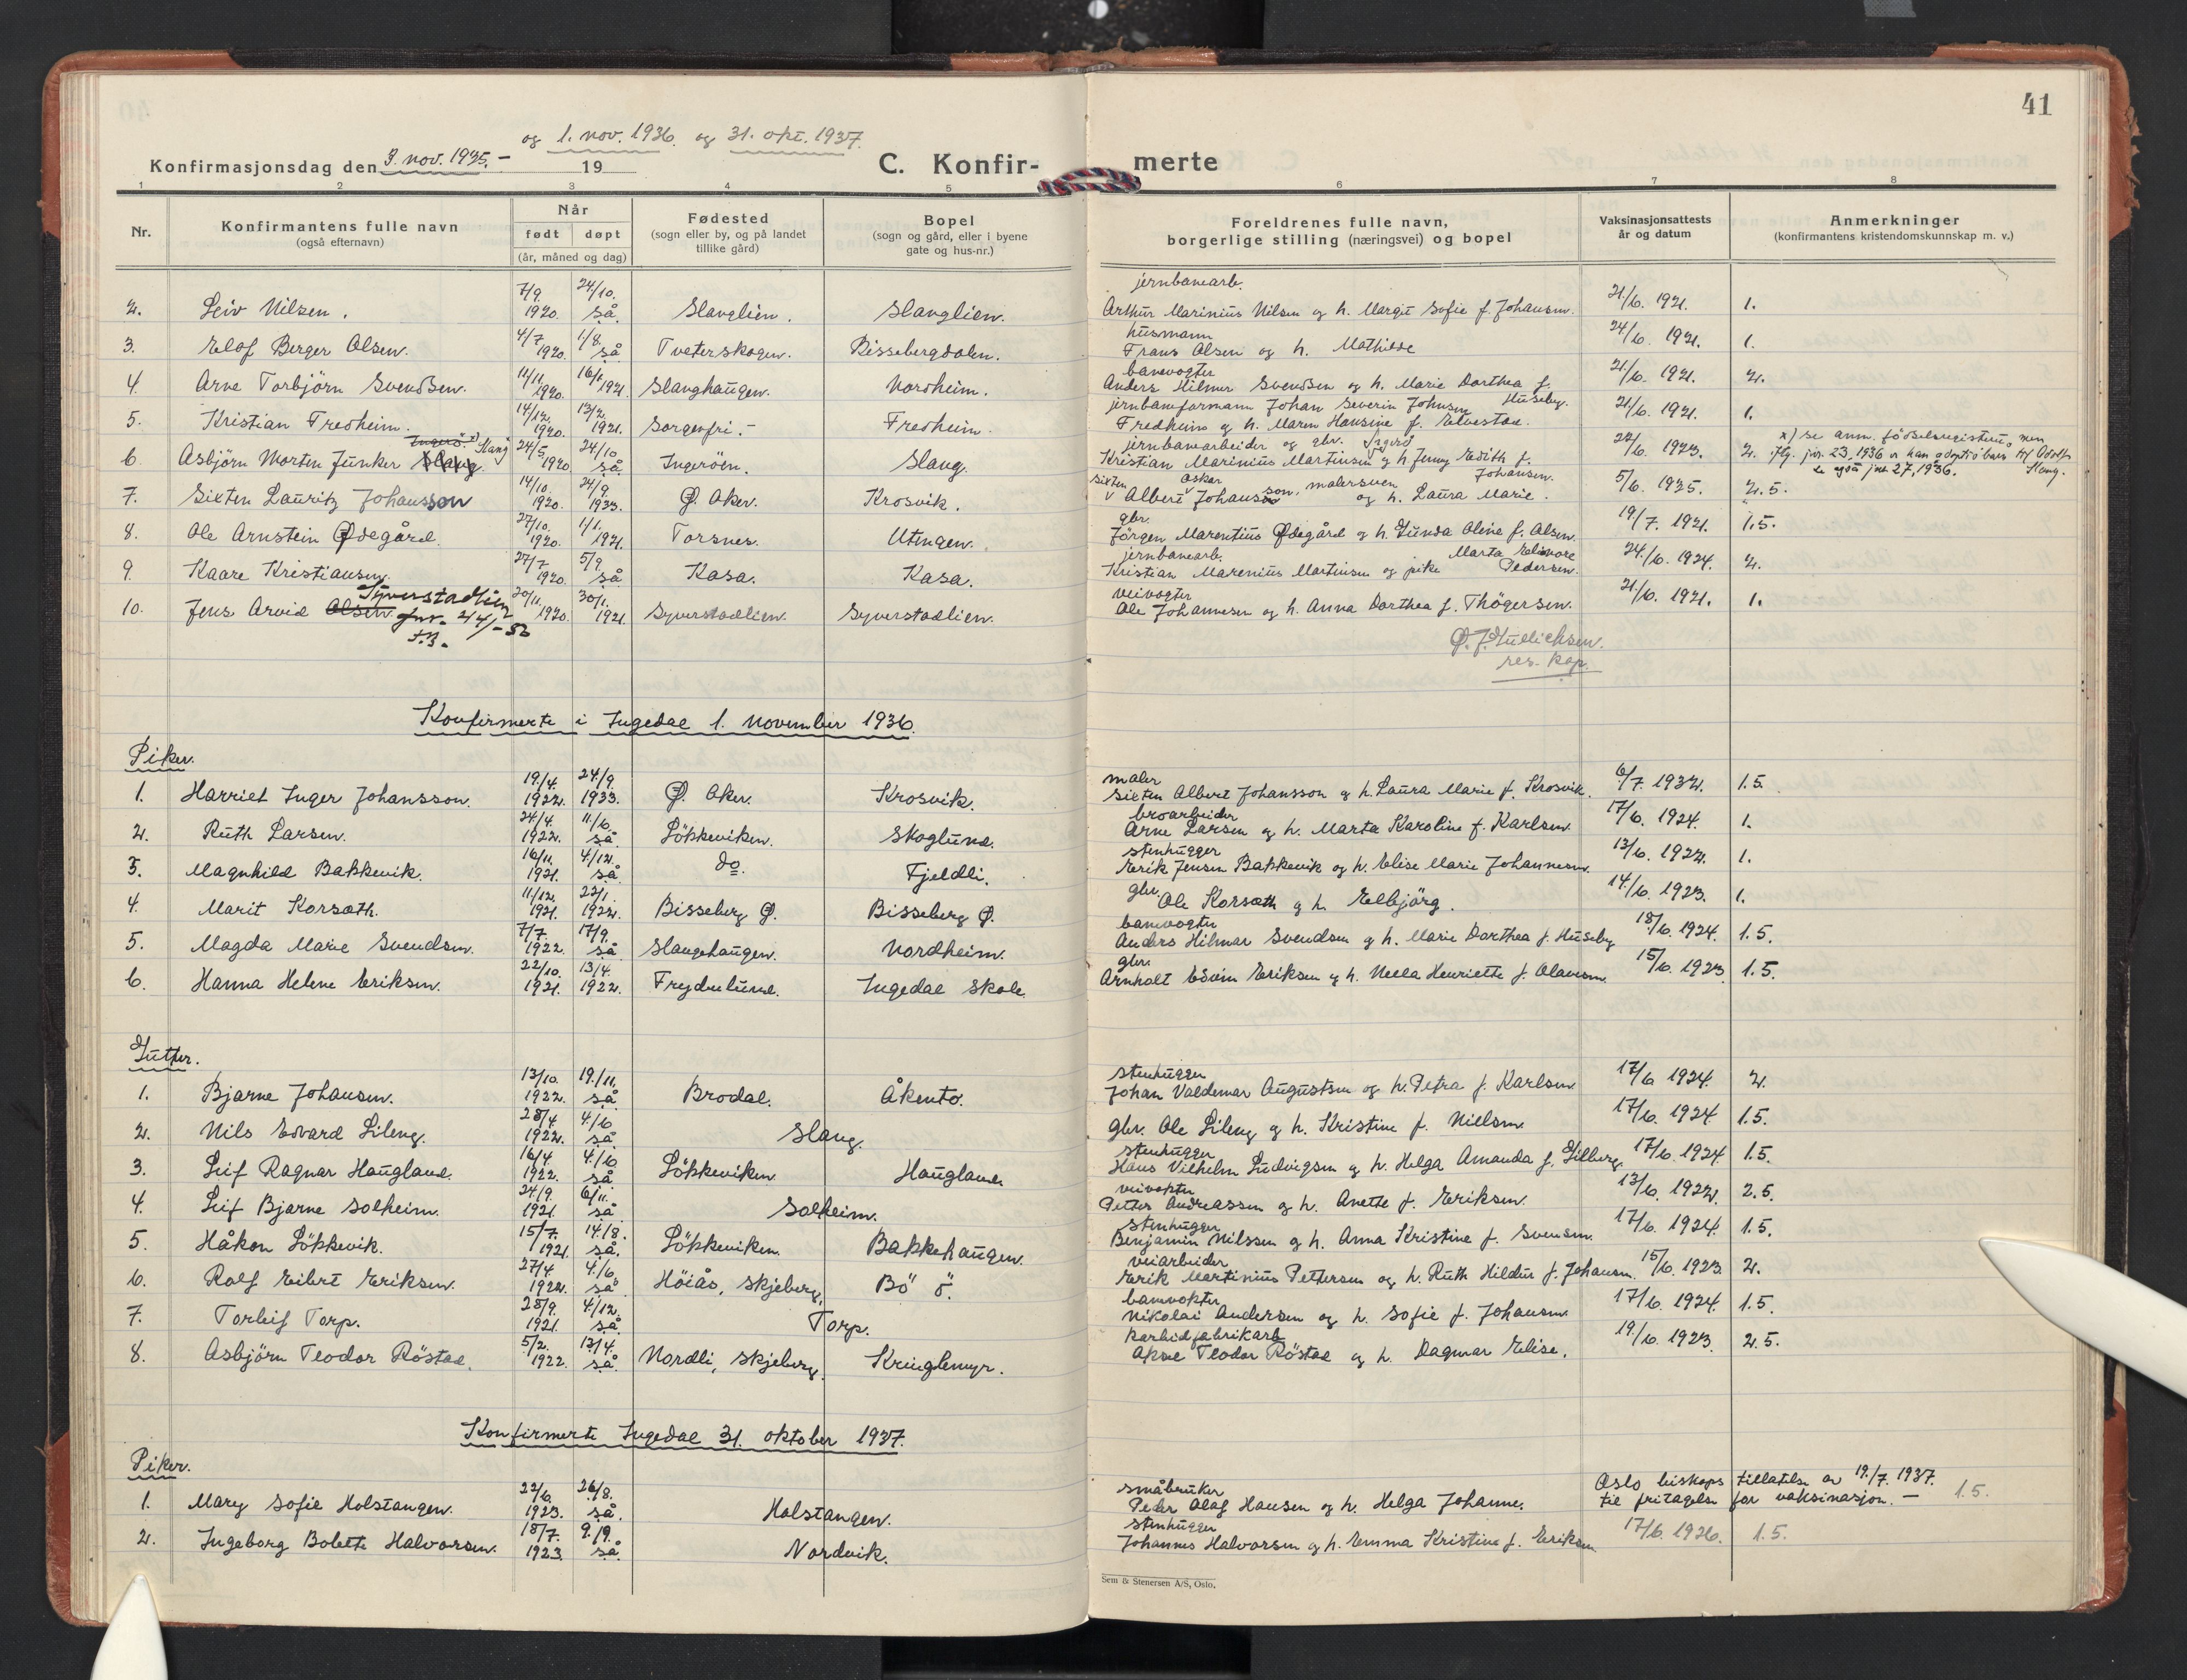 41
og 1. nov. 1936. og 31. okt. 1937.
Konfirmasjonsdag den 3. nov. 1935. - 19
C. Konfir-merte
1 2 3 4 5 6 7 8
Nr.
Konfirmantens fulle navn
(også efternavn)
Når
født døpt
(år, måned og dag)
Fødested
(sogn eller by, og på landet
tillike gård)
Bopel
(sogn og gård, eller i byene
gate og hus-nr.)
Foreldrenes fulle navn,
borgerlige stilling (næringsvei) og bopel
Vaksinasjonsattests
år og datum
Anmerkninger
(konfirmantens kristendomskunnskap m. v.)
7/9. 24/10. jernbanearb.
2. Leiv Nilsen. 1920. så. Slanglien. Slanglien. Arthur Marinius Nilsen og h. Margit Sofie f. Johansen. 21/6. 1921. 1.
4/7 1/8. husmann
3. Elof Berger Olsen. 1920. så Tveterskogen. Bissebergdalen. Frans Olsen og h. Mathilde 24/6. 1921. 1.
11/11. 16/1 banevogter
4. Arne Torbjörn Svendsen. 1920. 1921. Slanghaugen. Nordheim. Anders Hilmer Svendsen og h. Marie Dorthea f. Huseby. 21/6. 1921. 2.
14/12. 13/2. jernbaneformann Johan Severin Johnsen
5. Kristian Fredheim. 1920. 1921. Sorgenfri.- Fredheim. Fredheim og h. Maren Hansine f. Elvestad. 21/6. 1921. 1.
Ingerö. x) Slang 24/5. 24/10 jernbanearbeider og gbr. Ingerö
6. Asbjörn Morten Junker Slang. 1920. så Ingeröen. Slang. Kristian Marinius Martinsen og h. Jenny Edith f. Johansen. 22/6. 1923. 2.
x) se anm. födselsregisteret, men
iflg. jnr. 23, 1936 er han adoptivbarn til Adolf Slang.
se også jnr. 27, 1936.
14/10. 24/9. Sixten Oskar malersven
7. Sixten Lauritz Johansson 1920. 1933. Ø. Aker. Krosvik. Albert Johansson, og h. Laura Marie. 5/6. 1925. 2.5.
27/10. 1/1. gbr.
8. Ole Arnstein Ødegård. 1920. 1921. Torsnes. Utengen. Jörgen Marentius Ødegård og h. Gunda Oline f. Olsen. 19/7. 1921. 1.5.
27/7 5/9. jernbanearb. Marta Elinore
9. Kaare Kristiansen. 1920. så Kasa. Kasa. Kristian Marenius Martinsen og pike Pedersen. 24/6. 1924. 2.
Syverstadlien 20/11. 30/1. veivogter
10. Jens Arvid Olsen. jnr. 24/-52 1920. 1921. Syverstadlien. Syverstadlien. Ole Johannesen og h. Anna Dorthea f. Thögersen. 21/6. 1921. 1.
res. kap.
Konfirmerte i Ingedal 1. november 1936.
Piker.
19/4. 24/9. maler
1. Harriet Inger Johansson. 1922. 1933. Ø. Aker. Krosvik. Sixten Albert Johansson og h. Laura Marie f. Krosvik. 6/7. 1932. 1.5.
24/4. 11/6. broarbeider
2. Ruth Larsen. 1922. så. Lökkeviken. Skoglund. Arne Larsen og h. Marta Karoline f. Karlsen. 17/6. 1924. 1.
16/11. 4/12. stenhugger
3. Magnhild Bakkevik. 1921. så. do. Fjeldli. Erik Jensen Bakkevik og h. Elise Marie Johannesen. 13/6. 1922. 1.
11/12. 22/1. gbr.
4. Marit Korsæth. 1921. 1922. Bisseberg Ø. Bisseberg Ø. Ole Korsæth og h. Ellbjörg. 14/6. 1923. 1.
7/7. 17/9. banevogter
5. Magda Marie Svendsen. 1922. så Slangehaugen. Nordheim. Anders Hilmar Svendsen og h. Marie Dorthea f. Huseby 18/6. 1924. 1.5.
22/10. 13/4. gbr.
6. Hanna Helene Eriksen. 1921. 1922. Frydenlund. Ingedal skole. Arnholt Edvin Eriksen og h. Nella Henriette f. Olausen. 15/6. 1923. 1.5.
Gutter.
13/10. 19/11. stenhugger
1. Bjarne Johansen. 1922. så. Brodal. Åkento. Johan Valdemar Augustsen og h. Petra f. Karlsen 17/6 1924. 2.
28/4 4/6
2. Nils Edvard Lileng. 1922. så. Slang. gbr. Ole Lileng og h. Kristine f. Nielsen. 17/6. 1924. 1.5.
16/4. 4/6 stenhugger
3. Leif Ragnar Haugland. 1922. så. Lökkeviken Haugland Hans Vilhelm Ludvigsen og h. Helga Amanda f. Gilberg. 17/6. 1924. 1.5.
24/9. 6/11. veivokter
4. Leif Bjarne Solheim. 1921. så Solheim. Petter Andreassen og h. Anette f. Eriksen. 13/6. 1922. 2.5.
15/7. 14/8. stenhugger
5. Håkon Lökkevik. 1921. så. Lökkeviken. Bakkehaugen. Benjamin Nilssen og h. Anna Kristine f. Svensen. 17/6. 1924. 1.5.
27/4 4/6. veiarbeider
6. Rolf Eibert Eriksen. 1922. så Höiås, Skjeberg. Bö ö. Erik Martinius Pettersen og h. Ruth Hildur f. Johansen. 15/6. 1923. 2.
28/9. 4/12. banevokter
7. Torleif Torp. 1921. så. Torp. Nikolai Andersen og h. Sofie f. Johansen. 17/6. 1924. 1.5.
5/2. 13/4. karbidfabrikarb.
8. Asbjörn Teodor Röstad. 1922. så. Nordli, Skjeberg. Kringlemyr. Aksel Teodor Röstad og h. Dagmar Elise. 19/6. 1923. 2.5.
Konfirmerte Ingedal 31. oktober 1937.
Piker.
22/6. 26/8. småbruker Oslo biskops tillatelse av 19/7. 1937.
1. Mary Sofie Holstangen. 1923. så. Holstangen. Peder Olaf Hansen og h. Helga Johanne. til fritagelse for vaksinasjon. - 1.5.
18/7. 9/9. stenhugger
2. Ingeborg Bolette Halvorsen. 1923. så. Nordvik. Johannes Halvorsen og h. Emma Kristine f. Eriksen 17/6. 1926. 1.5.
Sem & Stenersen A/S, Oslo.